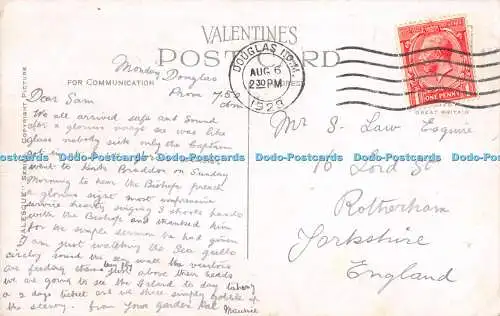 VALENTINES
POST CARD
FOR COMMUNICATION
ADDRESS
"VALESQUE" SERIES COPYRIGHT PICTURE
DOUGLAS I.O.M.
AUG 6
2 30 PM
1929
ONE PENNY
GREAT BRITAIN
Monday Douglas
7.50
Dear Sam
We all arrived safe and sound
after a glorious voyage sea was like
glass nobody sick only the Captain
went to Kirk Braddon on Sunday
Morning to hear the Bishop preach
a glorious sight most impressive
service hearty singing I shook hands
with the Bishop and thanked him
for the simple sermon he had given
I am just watching the Sea gulls
circling round the sea wall the visitors
are feeding them just above their heads
we are going to see the Island to day
a 2 days ticket and we three simply gobble up
the scenery. from Your Garden Pal Maurice
Mr S- Law Esquire
16 Lord St
Rotherham
Yorkshire
England
www.Domada-Postcards.de